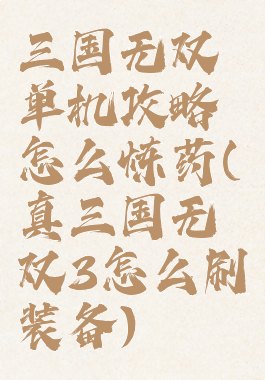 三国无双
单机攻略
怎么炼药(
真三国无
双3怎么刷
装备)